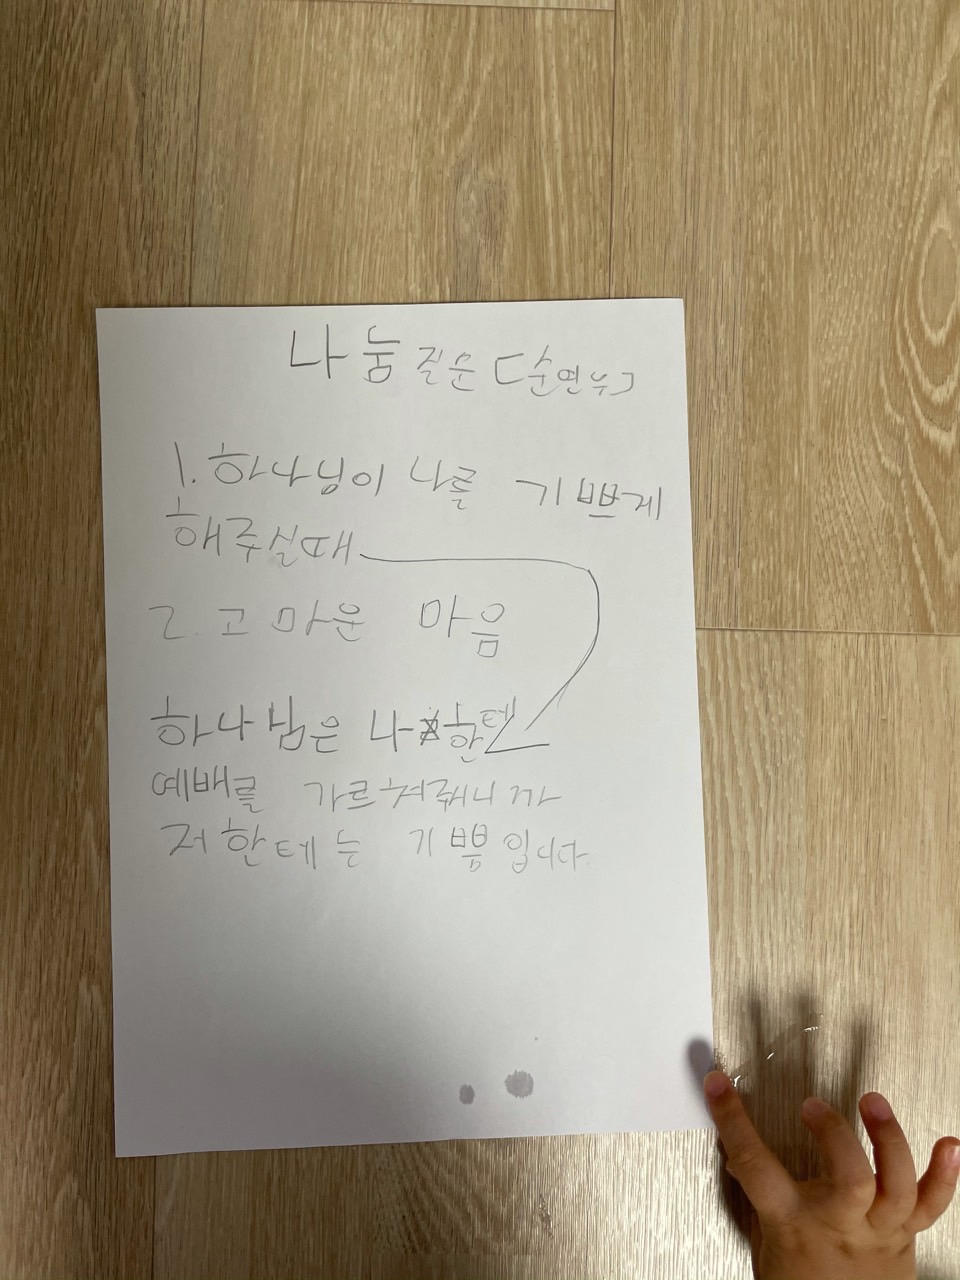 나눔 질문 (순연우)
1. 하나님이 나를 기쁘게
해주실때
2. 고마운 마음
하나님은 나한테
예배를 가르쳐줘니까
저한테는 기쁨입니다.